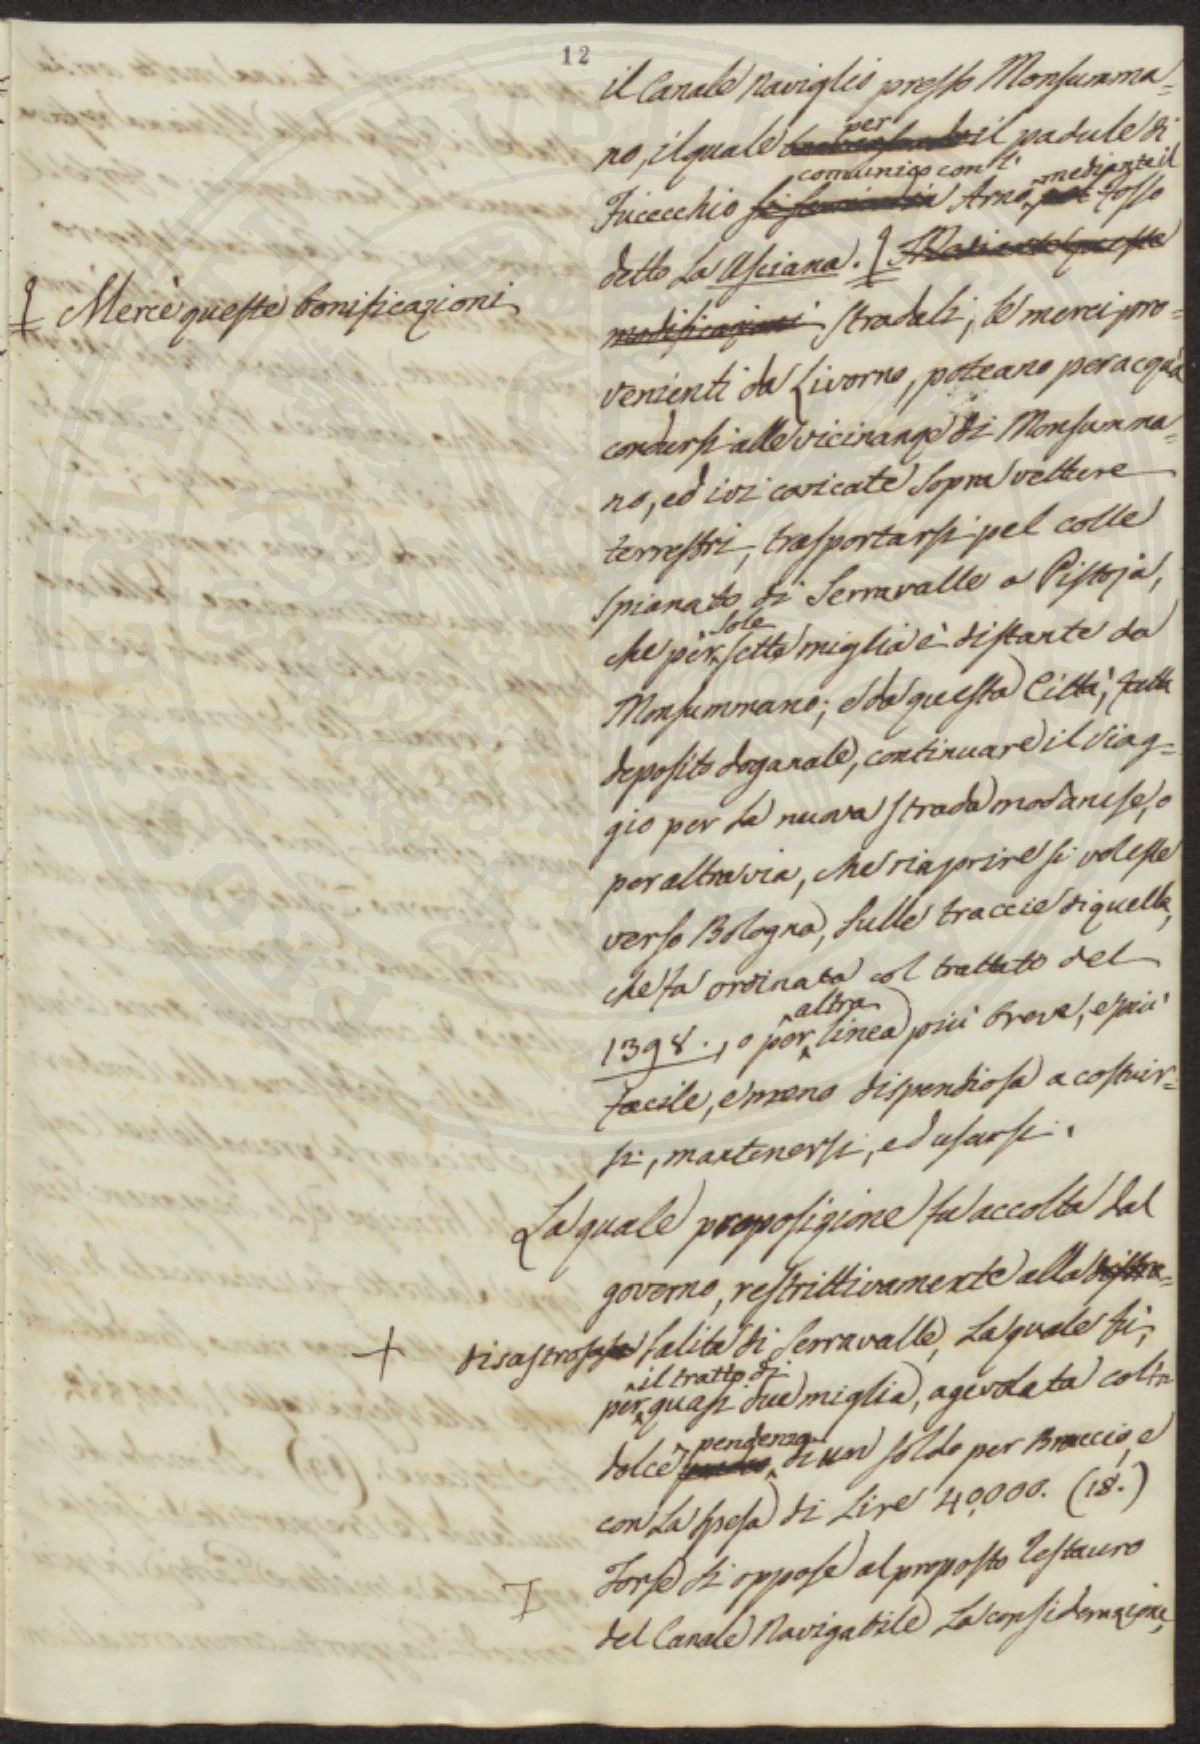 12
il Canale Naviglio presso Monsumma=
no, il quale per il padule di
Fucecchio comunica con l' Arno, mediante il fosso
detto La Usciana.
Mercè queste bonificazioni
modificazioni stradali, le merci pro=
venienti da Livorno, poteano per acqua
condursi alle vicinanze di Monsumma=
no, ed ivi caricate sopra vetture
terrestri, trasportarsi pel colle
spianato di Serravalle a Pistoja,
che per sole sette miglia è distante da
Monsummano; e da questa Città, fatta
deposito doganale, continuare il viag=
gio per la nuova strada modanese, o
per altra via, che riaprire si volesse
verso Bologna, sulle traccie di quella,
che fu ordinata col trattato del
1398., o per altra linea più breve, e più
facile, e meno dispendiosa a costruir=
si, mantenersi, ed usarsi.
La quale proposizione fu accolta dal
governo, restrittivamente alla
+ disastrosa salita di Serravalle, la quale fù,
per il tratto di quasi due miglia, agevolata coll'
dolce pendenza di un soldo per Braccio, e
con la spesa di Lire 40,000. (18.)
Forse si oppose al proposto restauro
del Canale Navigabile la considerazione,